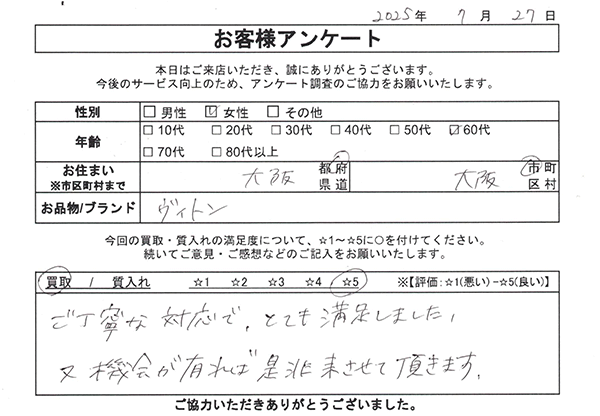 2025年 7月 27日
お客様アンケート
本日はご来店いただき、誠にありがとうございます。
今後のサービス向上のため、アンケート調査のご協力をお願いいたします。
性別 □男性 ☑女性 □その他
年齢 □10代 □20代 □30代 □40代 □50代 ☑60代
□70代 □80代以上
お住まい ※市区町村まで 大阪 都府県道 大阪 市町区村
お品物/ブランド ヴィトン
今回の買取・質入れの満足度について、☆1～☆5に○を付けてください。
続いてご意見・ご感想などのご記入をお願いいたします。
買取 / 質入れ ☆1 ☆2 ☆3 ☆4 ☆5 ※【評価:☆1(悪い)－☆5(良い)】
ご丁寧な対応で、とても満足しました。
又機会が有れば是非来させて頂きます。
ご協力いただきありがとうございました。